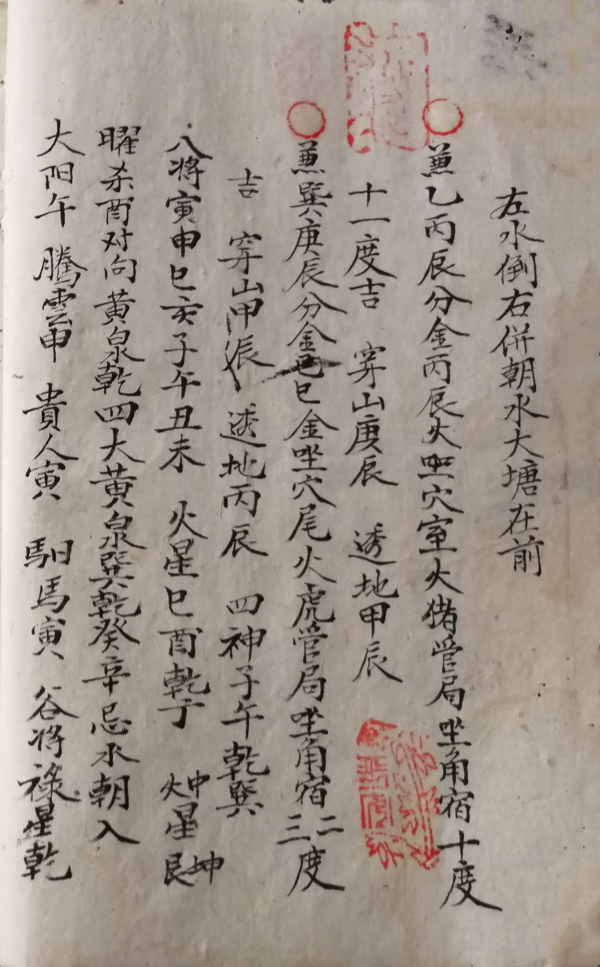 左水倒右併朝水大塘在前
兼乙丙辰分金丙辰火坐穴室火猪管局坐角宿十度
十一度吉 穿山庚辰 透地甲辰
兼巽庚辰分金巳金坐穴尾火虎管局坐角宿二三度
吉 穿山甲辰 透地丙辰 四神子午乾巽
八将寅申巳亥子午丑未 火星巳酉乾子 中火星坤艮
曜杀酉对向黄泉乾四大黄泉巽乾癸辛忌水朝入
大阳午 騰雲申 貴人寅 馹馬寅 谷将 禄星乾